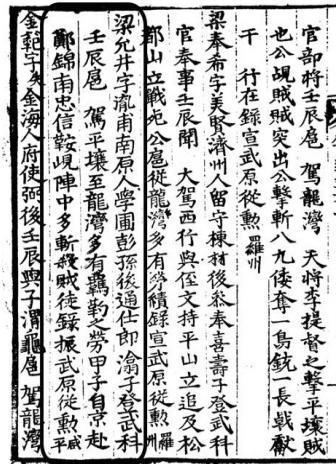 官部將壬辰扈 駕龍灣 天將李提督之擊平壤賊
也公覘賊賊突出公擊斬八九倭奪一鳥銃一長戟獻
干 行在錄宣武原從勲 羅州
梁奉希字美賢濟州人留守棟材後 奉喜壽子登武科
官奉事壬辰聞 大駕西行與侄文持平山立追及松
都山立戰死公扈從龍灣多有勞績錄宣武原從勲 羅州
梁允井字 甫南原人學圃彭孫後通仕郎 子登武科
壬辰扈 駕平壤至龍灣多有羈靮之勞甲子自京赴
鄭錦南忠信鞍峴陣中多斬殺賊徒錄振武原從勲 咸平
金範字 金海人府使 後壬辰與子渭龜扈 駕龍灣